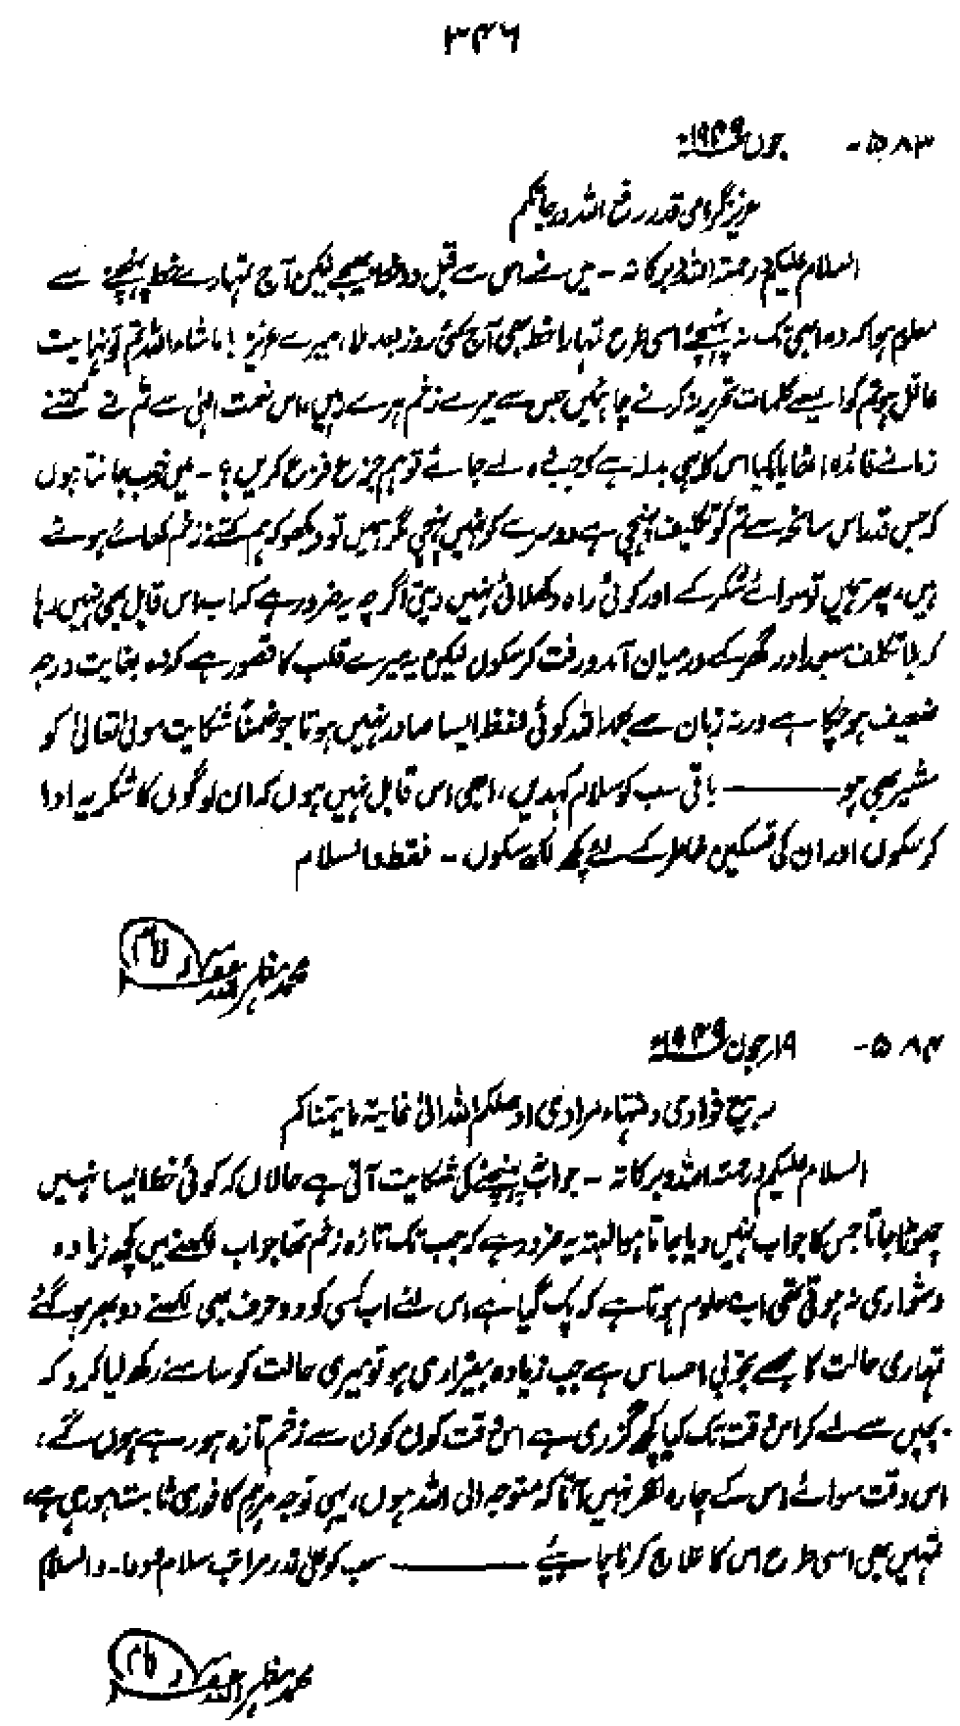 ۳۴۶
۵۸۳- جون ۱۹۴۹ء
عزیز گرامی قدر رفع اللہ درجاتکم
السلام علیکم ورحمۃ اللہ وبرکاتہ - میں نے اس سے قبل دو خط بھیجے لیکن آج تمہارے خط پہنچنے سے
معلوم ہوا کہ وہ ابھی تک نہ پہنچے اسی طرح تمہارا خط بھی آج کئی روز بعد ملا، میرے عزیز! ماشاء اللہ تم تو نہایت
عاقل ہو تم کو ایسے کلمات تحریر نہ کرنے چاہئیں جس سے میرے زخم ہرے ہوں، اس نعمت الٰہی سے تم نے کتنے
زمانے فائدہ اٹھایا کیا اس کا یہی بدلہ ہے کہ جب وہ لے جائے تو ہم جزع فزع کریں؟ - میں خوب جانتا ہوں
کہ جس قدر اس سانحہ سے تم کو تکلیف پہنچی ہے دوسرے کو نہیں پہنچی مگر ہمیں تو دیکھو کہ ہم کتنے زخم کھائے ہوئے
ہیں، پھر ہمیں تو سوائے شکر کے اور کوئی راہ دکھلائی نہیں دیتی اگرچہ یہ ضرور ہے کہ اب اس قابل بھی نہیں رہا
کہ بلا تکلف مسجد اور گھر کے درمیان آمد و رفت کر سکوں لیکن یہ میرے قلب کا قصور ہے کہ وہ بغایت درجہ
ضعیف ہو چکا ہے ورنہ زبان سے بحمد اللہ کوئی لفظ ایسا صادر نہیں ہوتا جو ضمناً شکایت مولیٰ تعالیٰ کو
مشیر بھی ہو ——— باقی سب کو سلام کہدیں، ابھی اس قابل نہیں ہوں کہ ان لوگوں کا شکریہ ادا
کر سکوں اور ان کی تسکین خاطر کے لئے کچھ لکھ سکوں - فقط والسلام
محمد مظہر اللہ غفرلہ
۵۸۴- ۱۹؍جون ۱۹۴۹ء
ربیع فوادی ومنتہاء مرادی اوصلکم اللہ الیٰ غایۃ مایتمناکم
السلام علیکم ورحمۃ اللہ وبرکاتہ - جواب نہ پہنچنے کی شکایت آتی ہے حالاں کہ کوئی خط ایسا نہیں
چھوڑا جاتا جس کا جواب نہیں دیا جاتا ہو البتہ یہ ضرور ہے کہ جب تک تازہ زخم تھا جواب لکھنے میں کچھ زیادہ
دشواری نہ ہوتی تھی اب معلوم ہوتا ہے کہ پک گیا ہے اس لئے اب کسی کو دو حرف بھی لکھنے دوبھر ہو گئے
تمہاری حالت کا مجھے بخوبی احساس ہے جب زیادہ بیقراری ہو تو میری حالت کو سامنے رکھ لیا کرو کہ
بچپن سے لے کر اس وقت تک کیا کچھ گزری ہے اس وقت کون کون سے زخم تازہ ہو رہے ہوں گے،
اس وقت سوائے اس کے چارہ نظر نہیں آتا کہ متوجہ الی اللہ ہوں، یہی توجہ مرہم کافوری ثابت ہو رہی ہے،
تمہیں بھی اسی طرح اس کا علاج کرنا چاہیئے ——— سب کو علیٰ قدر مراتب سلام و دعا - والسلام
محمد مظہر اللہ غفرلہ